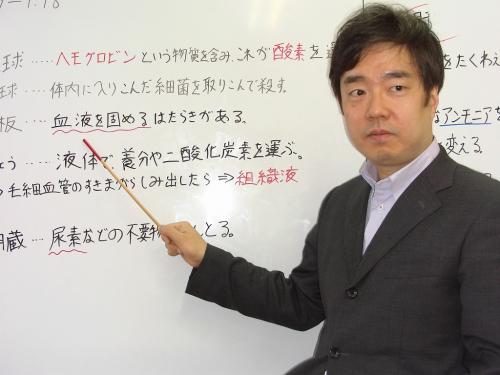 7.18
球 ‥‥ ヘモグロビンという物質を含み、これが酸素を運
球 ‥‥ 体内に入りこんだ細菌を取りこんで殺す。
板 ‥‥ 血液を固めるはたらきがある。
ょう ‥‥ 液体で、養分や二酸化炭素を運ぶ。
毛細血管のすきまからしみ出したら ⇒ 組織液
臓 ‥‥ 尿素などの不要物 とる。
をたくわえ
アンモニアを
変える